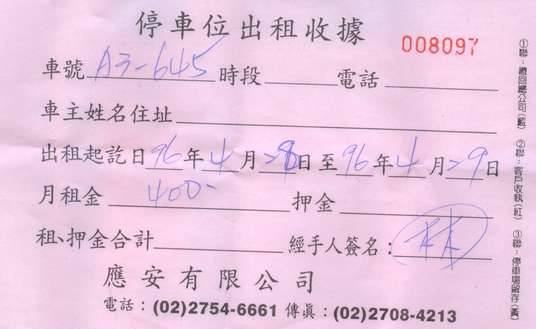 停車位出租收據
008097
車號 A3-645 時段 電話
車主姓名住址
出租起訖日 96 年 4 月 28 日至 96 年 4 月 29 日
月租金 400- 押金
租、押金合計 經手人簽名: 林
應安有限公司
電話:(02)2754-6661 傳眞:(02)2708-4213
①聯:繳回總公司(藍) ②聯:客戶收執(紅) ③聯:停車場留存(黃)